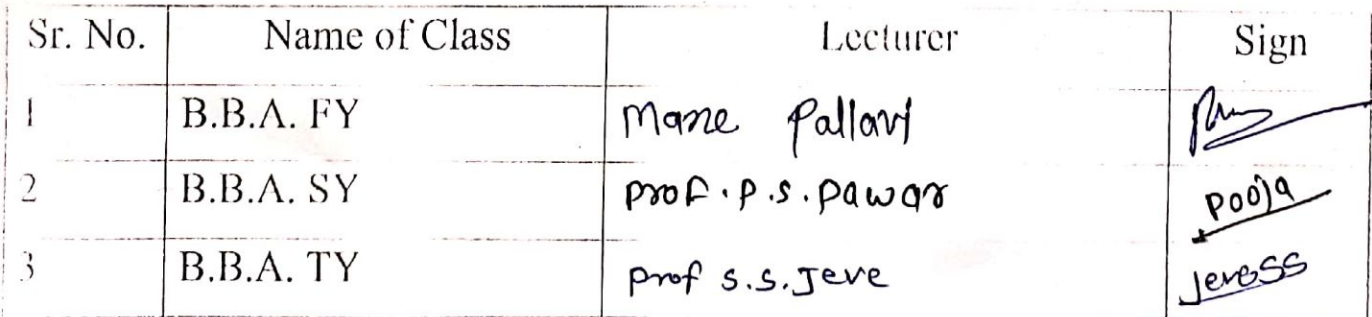 Sr. No. Name of Class Lecturer Sign
1 B.B.A. FY Mane Pallavi
2 B.B.A. SY Prof. P.S. Pawar Pooja
3 B.B.A. TY Prof S.S. Jeve JeveSS